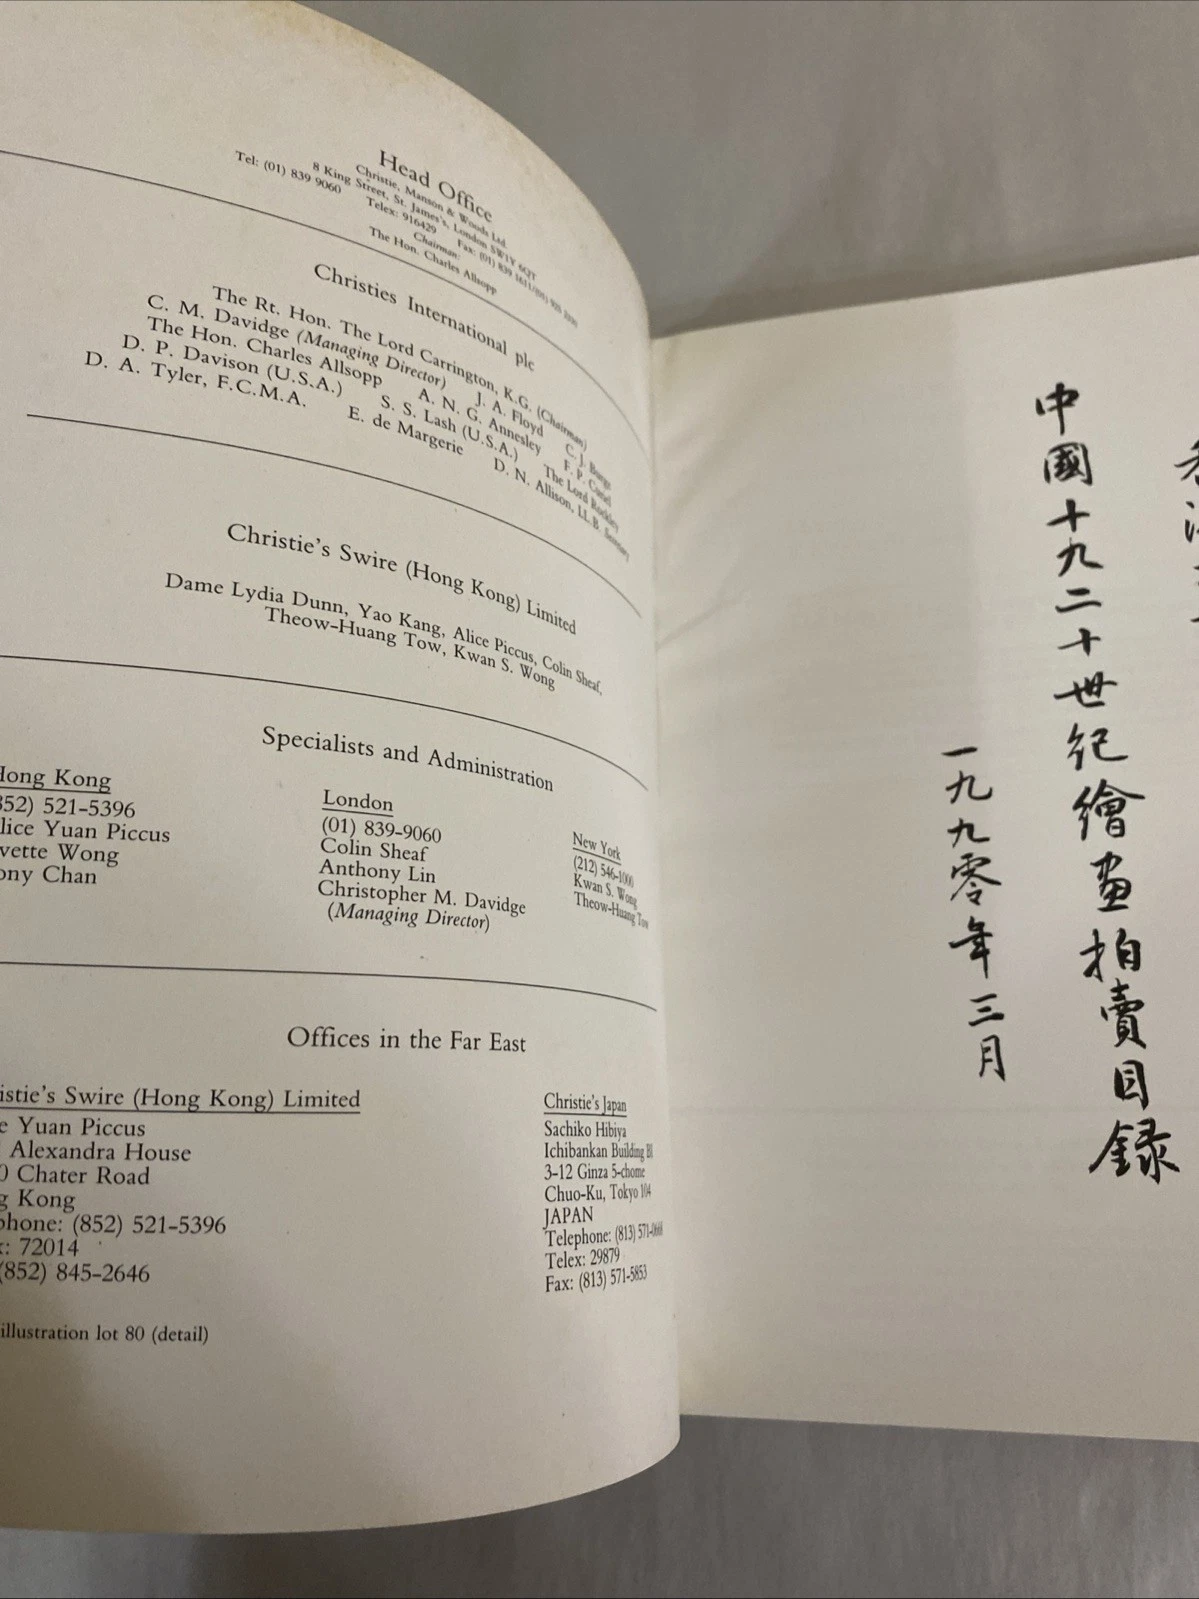 Head Office
Christie, Manson & Woods Ltd.
8 King Street, St. James's, London SW1Y 6QT
Tel: (01) 839 9060 Telex: 916429 Fax: (01) 839 1611
Chairman:
The Hon. Charles Allsopp
Christies International plc
The Rt. Hon. The Lord Carrington, K.G. (Chairman)
C. M. Davidge (Managing Director) J. A. Floyd C. J. Burge
The Hon. Charles Allsopp A. N. G. Annesley F. P.
D. P. Davison (U.S.A.) S. S. Lash (U.S.A.) The Lord Rockley
D. A. Tyler, F.C.M.A. E. de Margerie D. N. Allison, LL.B. Secretary
Christie's Swire (Hong Kong) Limited
Dame Lydia Dunn, Yao Kang, Alice Piccus, Colin Sheaf,
Theow-Huang Tow, Kwan S. Wong
Specialists and Administration
Hong Kong
852) 521-5396
lice Yuan Piccus
vette Wong
ony Chan
London
(01) 839-9060
Colin Sheaf
Anthony Lin
Christopher M. Davidge
(Managing Director)
New York
(212) 546-1000
Kwan S. Wong
Theow-Huang Tow
Offices in the Far East
istie's Swire (Hong Kong) Limited
e Yuan Piccus
Alexandra House
0 Chater Road
g Kong
phone: (852) 521-5396
x: 72014
(852) 845-2646
Christie's Japan
Sachiko Hibiya
Ichibankan Building
3-12 Ginza 5-chome
Chuo-Ku, Tokyo 104
JAPAN
Telephone: (813) 571-0668
Telex: 29879
Fax: (813) 571-5853
illustration lot 80 (detail)
中國十九二十世紀繪畫拍賣目錄
一九九零年三月